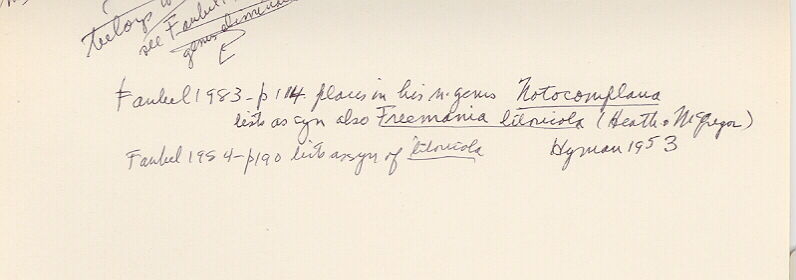 see Faubel,
genus eliminated
Faubel 1983 - p 114. places in his n. genus Notocomplana
lists as syn also Freemania litoricola (Heath & McGregor)
Faubel 1984 - p190 lists as syn of litoricola Hyman 1953